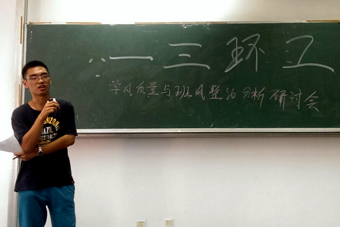 一三环工
学风质量与班风整治分析研讨会